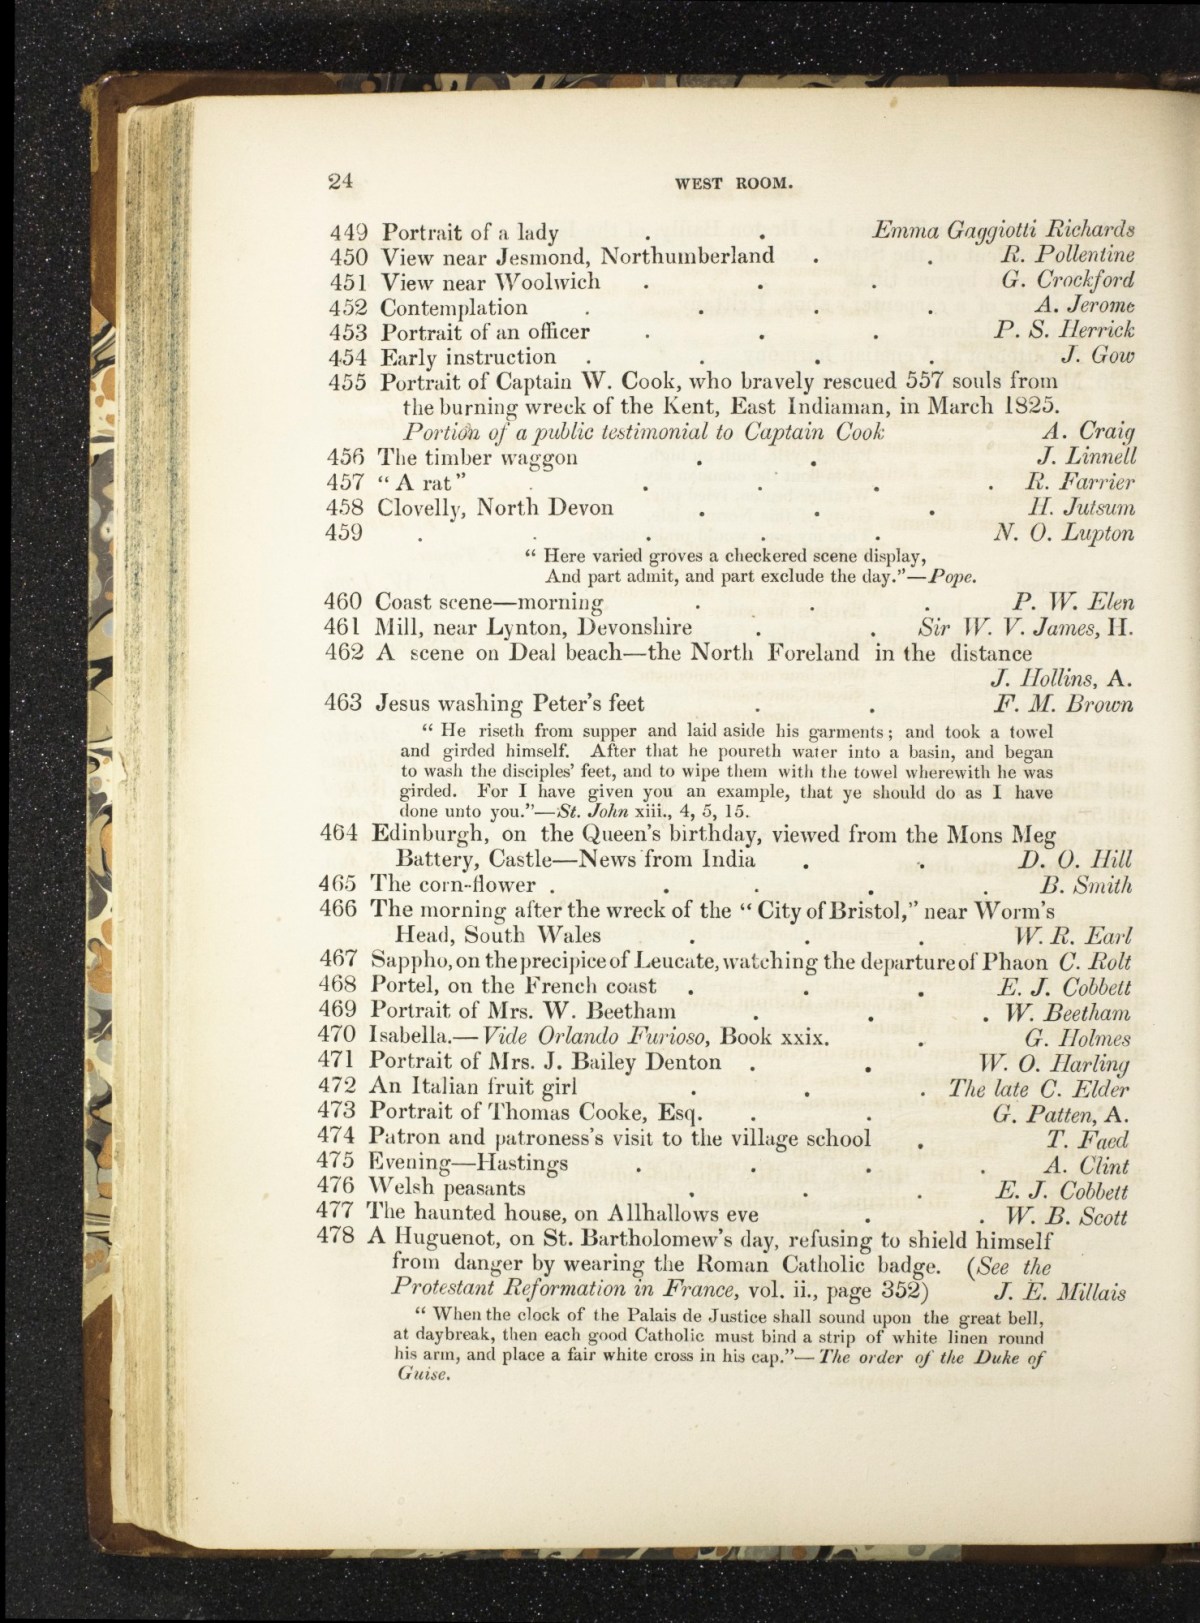 24
WEST ROOM.
449 Portrait of a lady . . Emma Gaggiotti Richards
450 View near Jesmond, Northumberland . . R. Pollentine
451 View near Woolwich . . . G. Crockford
452 Contemplation . . . . A. Jerome
453 Portrait of an officer . . . P. S. Herrick
454 Early instruction . . . . J. Gow
455 Portrait of Captain W. Cook, who bravely rescued 557 souls from
the burning wreck of the Kent, East Indiaman, in March 1825.
Portion of a public testimonial to Captain Cook A. Craig
456 The timber waggon . . J. Linnell
457 “ A rat” . . . . . R. Farrier
458 Clovelly, North Devon . . . H. Jutsum
459 . . . . . N. O. Lupton
“ Here varied groves a checkered scene display,
And part admit, and part exclude the day.”—Pope.
460 Coast scene—morning . . . P. W. Elen
461 Mill, near Lynton, Devonshire . . Sir W. V. James, H.
462 A scene on Deal beach—the North Foreland in the distance
J. Hollins, A.
463 Jesus washing Peter’s feet . . F. M. Brown
“ He riseth from supper and laid aside his garments; and took a towel
and girded himself. After that he poureth water into a basin, and began
to wash the disciples’ feet, and to wipe them with the towel wherewith he was
girded. For I have given you an example, that ye should do as I have
done unto you.”—St. John xiii., 4, 5, 15.
464 Edinburgh, on the Queen’s birthday, viewed from the Mons Meg
Battery, Castle—News from India . . D. O. Hill
465 The corn-flower . . . . . B. Smith
466 The morning after the wreck of the “ City of Bristol,” near Worm’s
Head, South Wales . . . W. R. Earl
467 Sappho, on the precipice of Leucate, watching the departure of Phaon C. Rolt
468 Portel, on the French coast . . . E. J. Cobbett
469 Portrait of Mrs. W. Beetham . . . W. Beetham
470 Isabella.—Vide Orlando Furioso, Book xxix. . G. Holmes
471 Portrait of Mrs. J. Bailey Denton . . W. O. Harling
472 An Italian fruit girl . . . The late C. Elder
473 Portrait of Thomas Cooke, Esq. . . G. Patten, A.
474 Patron and patroness’s visit to the village school . T. Faed
475 Evening—Hastings . . . . A. Clint
476 Welsh peasants . . . E. J. Cobbett
477 The haunted house, on Allhallows eve . . W. B. Scott
478 A Huguenot, on St. Bartholomew’s day, refusing to shield himself
from danger by wearing the Roman Catholic badge. (See the
Protestant Reformation in France, vol. ii., page 352) J. E. Millais
“ When the clock of the Palais de Justice shall sound upon the great bell,
at daybreak, then each good Catholic must bind a strip of white linen round
his arm, and place a fair white cross in his cap.”—The order of the Duke of
Guise.